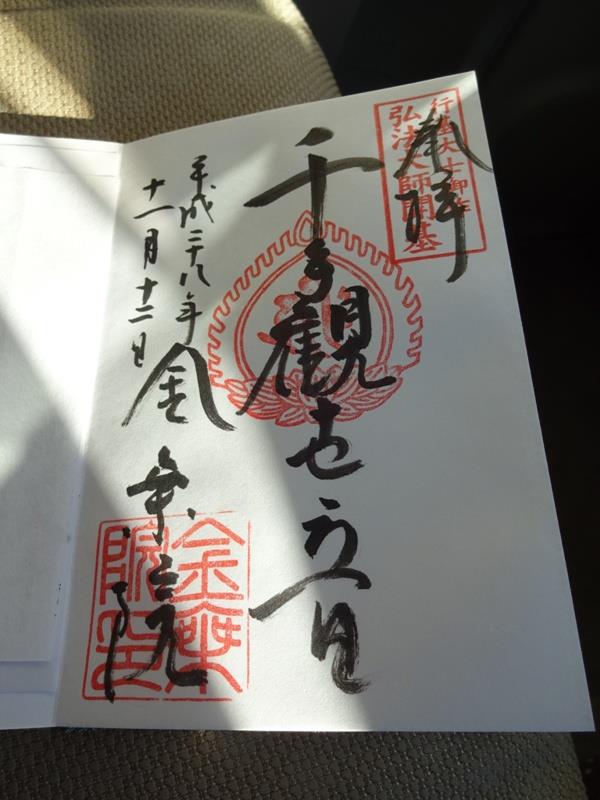 奉拝
行基大士御作
弘法大師開基
千手観世音
平成二十八年
十一月十二日
金乗院
金乗院印